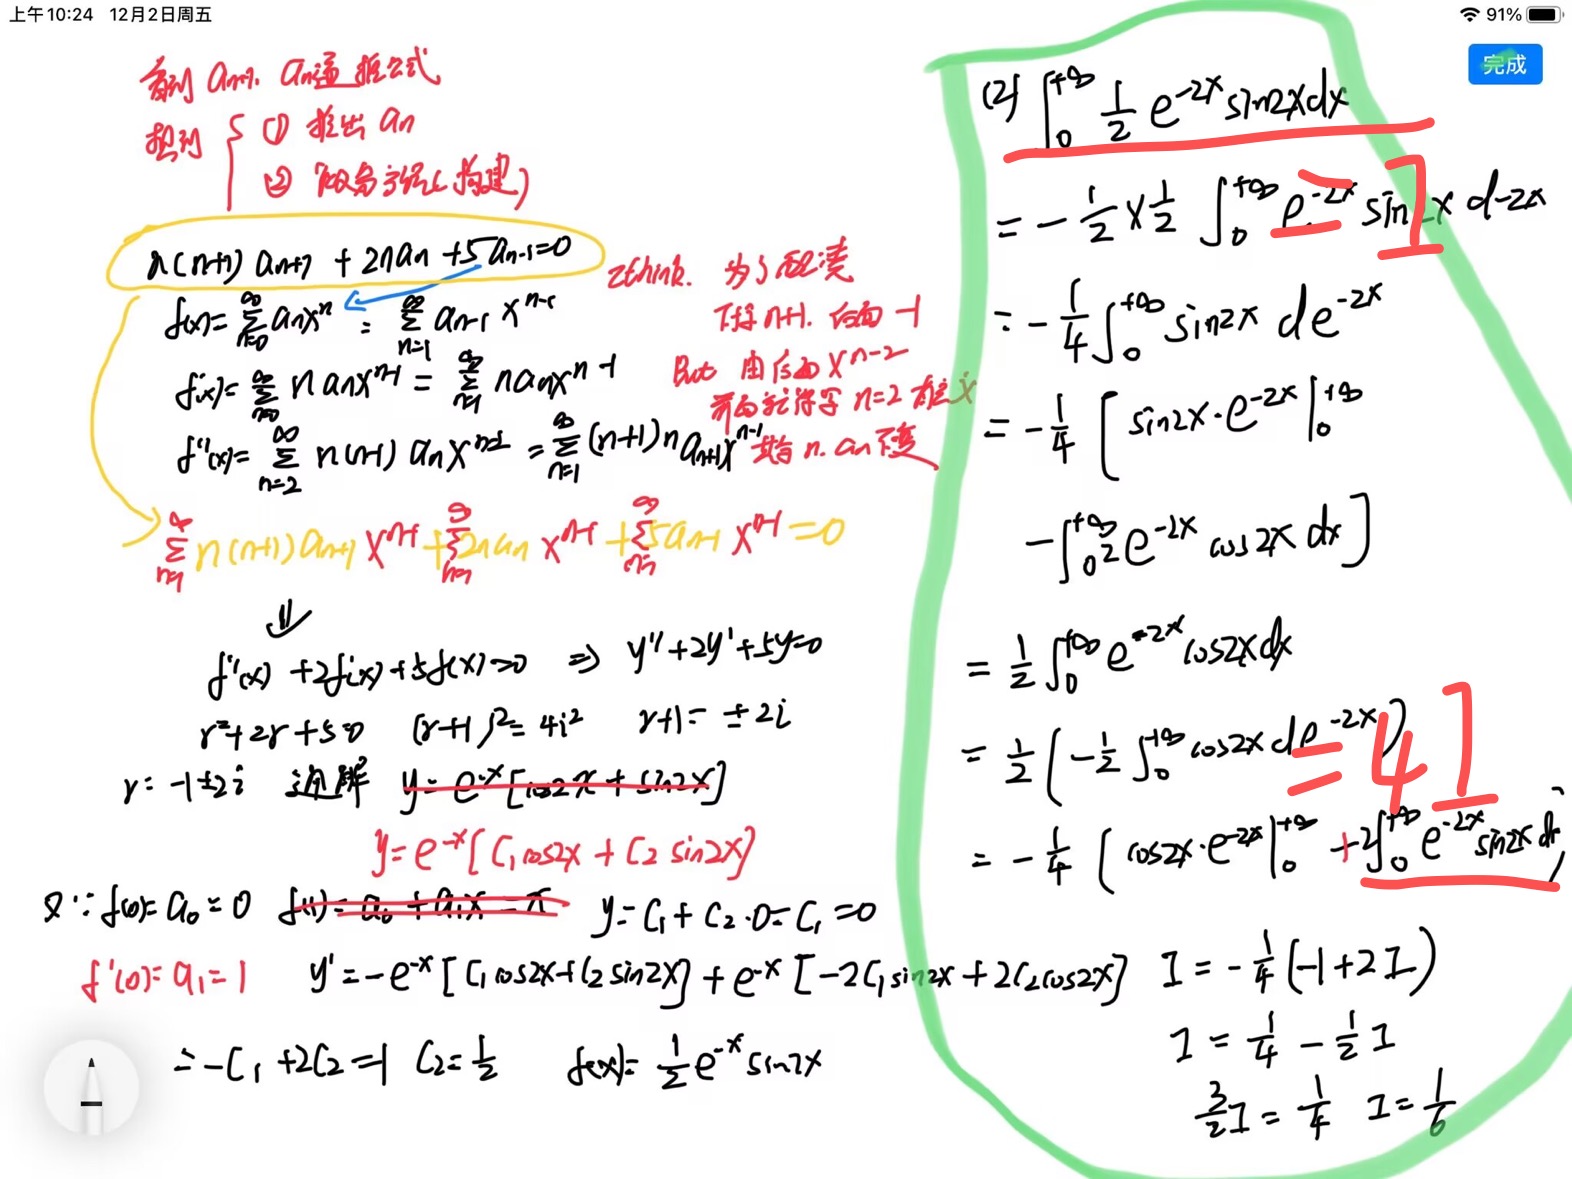 上午10:24 12月2日周五
91%
完成
看到 an+1. an 递推公式
想到 { ① 推出 an
② 微分方程(构建)
n(n+1) an+1 + 2nan + 5an-1 = 0
f(x) = ∑_{n=0}^{∞} anx^n = ∑_{n=1}^{∞} an-1 x^{n-1}
f'(x) = ∑_{n=0}^{∞} n anx^{n-1} = ∑_{n=1}^{∞} nanx^{n-1}
f''(x) = ∑_{n=2}^{∞} n(n-1) an x^{n-2} = ∑_{n=1}^{∞} (n+1) n an+1 x^{n-1}
think. 为了配凑
下标 n+1. 后面 -1
But 由后面 x^{n-2}
n=2
n. an 不变
∑_{n=1}^{∞} n(n+1) an+1 x^{n-1} + ∑_{n=1}^{∞} 2nan x^{n-1} + ∑_{n=1}^{∞} 5an-1 x^{n-1} = 0
⇓
f''(x) + 2f'(x) + 5f(x) = 0 ⇒ y'' + 2y' + 5y = 0
r² + 2r + 5 = 0 (r+1)² = 4i² r+1 = ±2i
r = -1±2i 通解 y = e^{-x}[cos2x + sin2x]
y = e^{-x}[C₁cos2x + C₂ sin2x]
又∵ f(0) = a₀ = 0 f(1) = a₀ + a₁x = x y = C₁ + C₂·0 = C₁ = 0
f'(0) = a₁ = 1 y' = -e^{-x}[C₁cos2x + C₂sin2x] + e^{-x}[-2C₁sin2x + 2C₂cos2x]
= -C₁ + 2C₂ = 1 C₂ = 1/2 f(x) = 1/2 e^{-x} sin2x
(2) ∫_0^{+∞} 1/2 e^{-2x} sin2x dx
= I
= -1/2 × 1/2 ∫_0^{+∞} e^{-2x} sin2x d-2x
= -1/4 ∫_0^{+∞} sin2x de^{-2x}
= -1/4 [ sin2x·e^{-2x} |_0^{+∞}
- ∫_0^{+∞} 2e^{-2x} cos2x dx ]
= 1/2 ∫_0^{+∞} e^{-2x} cos2x dx
= 1/2 ( -1/2 ∫_0^{+∞} cos2x de^{-2x} )
= 4I
= -1/4 [ cos2x·e^{-2x} |_0^{+∞} + 2∫_0^{+∞} e^{-2x} sin2x dx ]
I = -1/4 (-1+2I)
I = 1/4 - 1/2 I
3/2 I = 1/4 I = 1/6